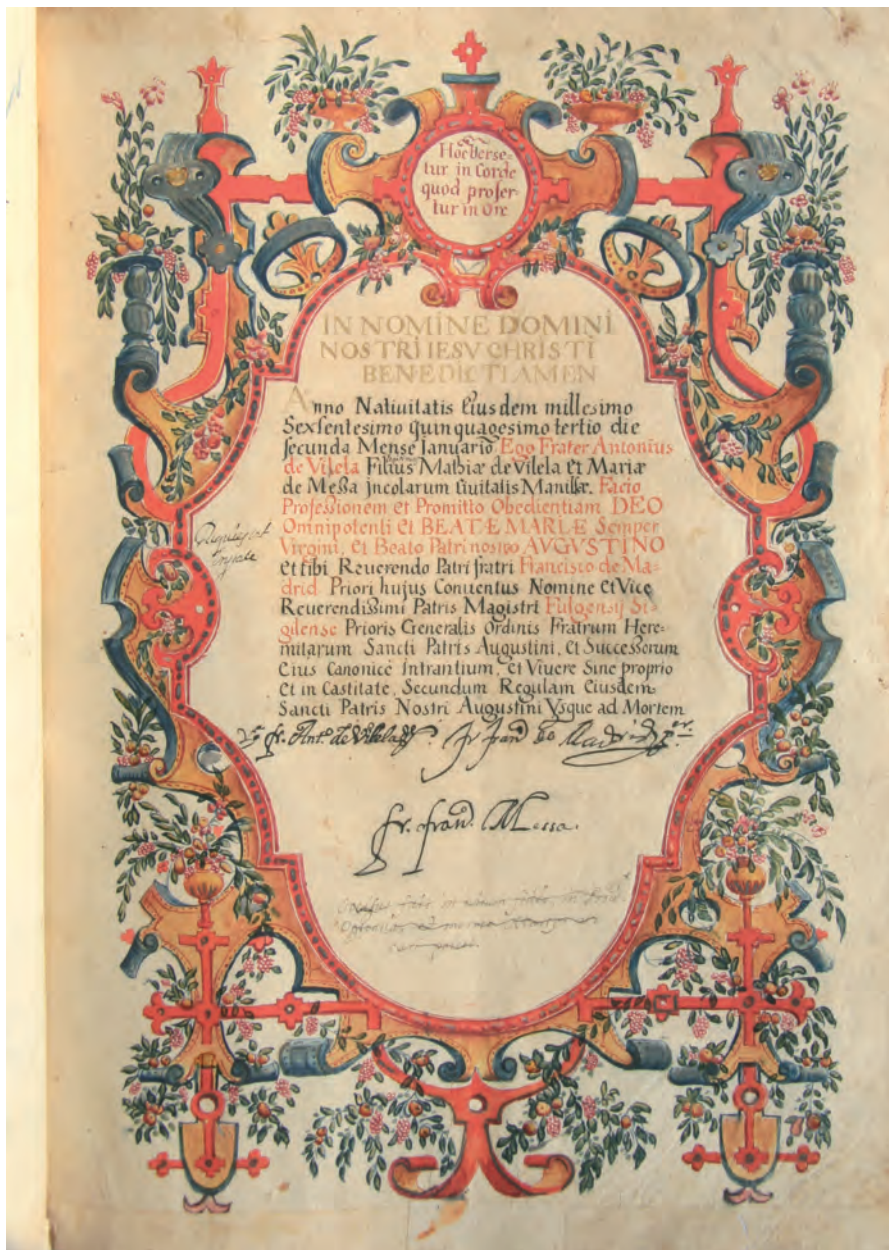 Hoc verse-
tur in Corde
quod profer-
tur in Ore
IN NOMINE DOMINI
NOSTRI IESV CHRISTI
BENEDICTI AMEN
Anno Natiuitatis Eiusdem millesimo
Sexsentesimo quinquagesimo tertio die
secunda Mense Ianuario Ego Frater Antonius
de Vilela Filius Mathiæ de Vilela Et Mariæ
de Messa jncolarum Ciuitatis Manillæ. Facio
Professionem et Promitto Obedientiam DEO
Omnipotenti Et BEATÆ MARIÆ Semper
Virgini, Et Beato Patri nostro AVGVSTINO
Et tibi Reuerendo Patri fratri Francisco de Ma-
drid Priori hujus Conuentus Nomine Et Vice
Reuerendissimi Patris Magistri Fulgensij Si-
gilense Prioris Generalis Ordinis Fratrum Here-
mitarum Sancti Patris Augustini, Et Successorum
Eius Canonice Intrantium, Et Viuere Sine proprio
Et in Castitate, Secundum Regulam Eiusdem
Sancti Patris Nostri Augustini Vsque ad Mortem
fr. Antº. de Vilela fr franco de Madrid Por.
fr. franco Messa.